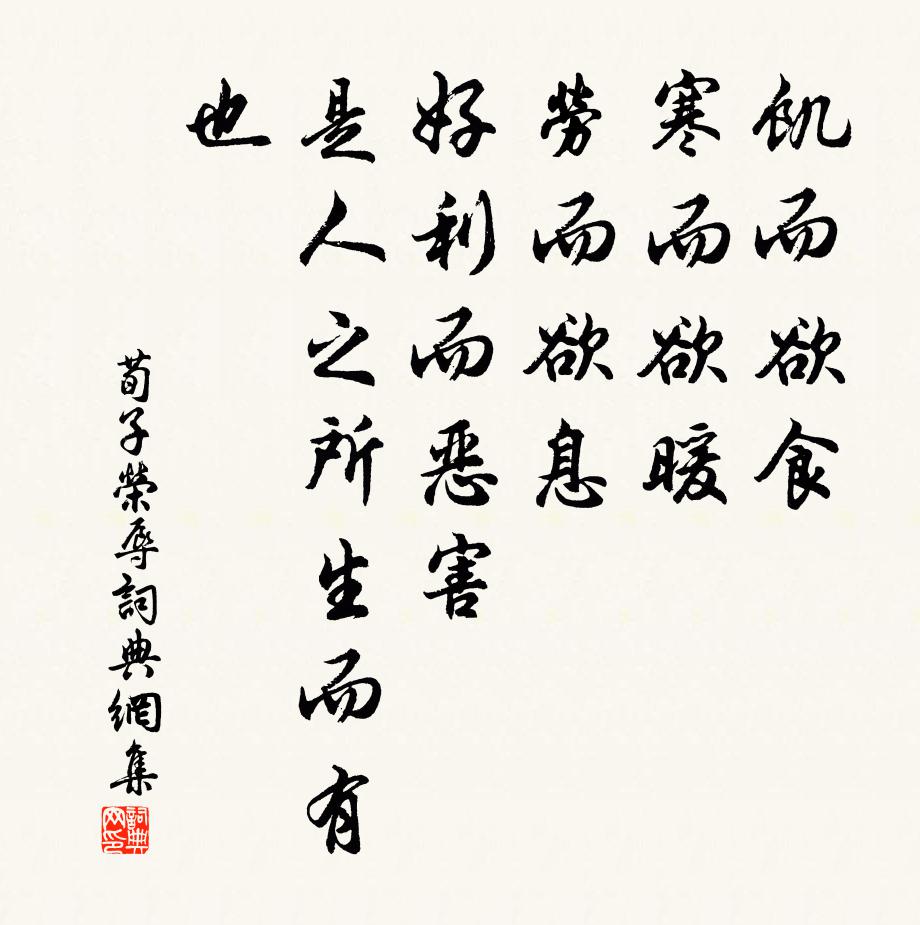 飢而欲食
寒而欲暖
劳而欲息
好利而恶害
是人之所生而有
也
荀子榮辱詞典網集
詞典网印